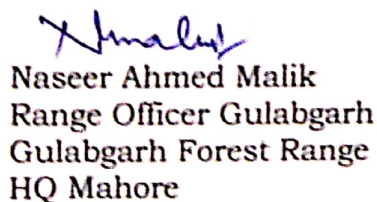 Naseer Ahmed Malik
Range Officer Gulabgarh
Gulabgarh Forest Range
HQ Mahore